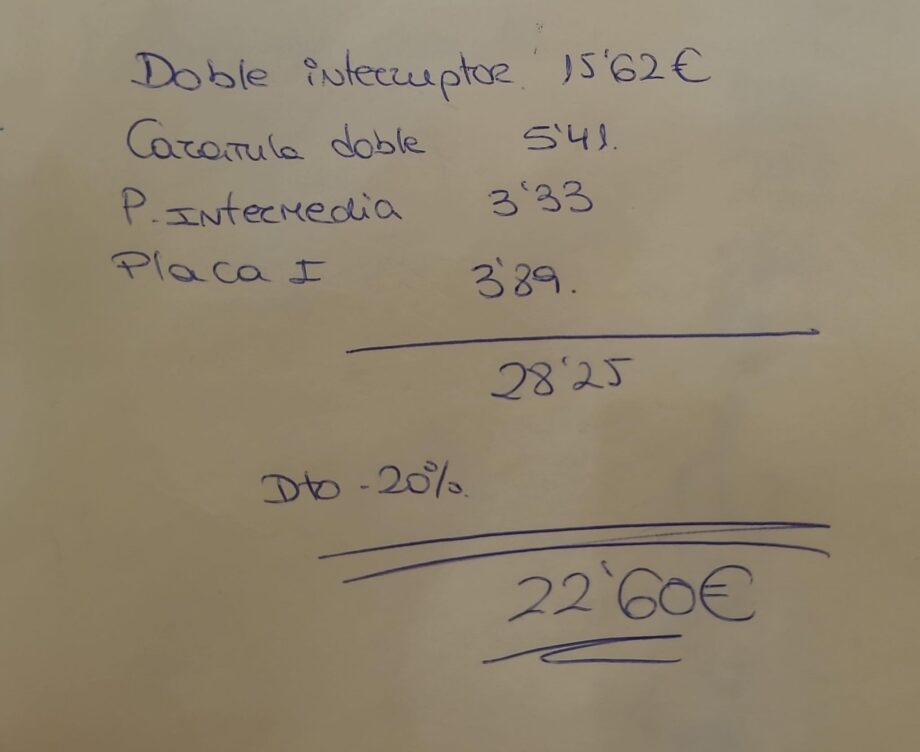 Doble interruptor 15'62€
Caratula doble 5'41.
P. Intermedia 3'33
Placa I 3'89.
28'25
Dto -20%
22'60€